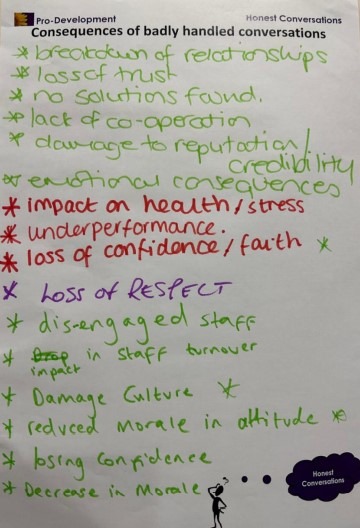 Pro-Development Honest Conversations
Consequences of badly handled conversations
* breakdown of relationships
* loss of trust
* no solutions found.
* lack of co-operation
* damage to reputation/
credibility
* emotional consequences
* impact on health/stress
* underperformance.
* loss of confidence/faith *
* Loss of RESPECT
* dis-engaged staff
* Drop in staff turnover
impact
* Damage Culture *
* reduced Morale in attitude *
* losing Confidence
* Decrease in Morale
Honest
Conversations